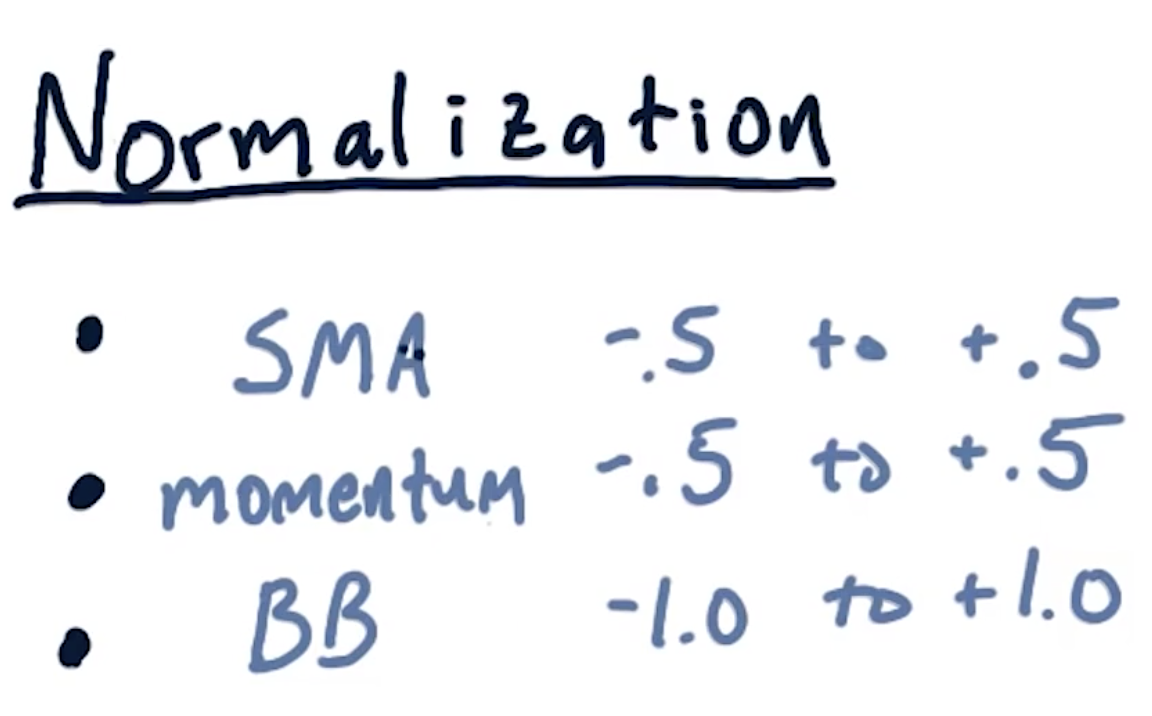 Normalization
• SMA -.5 to +.5
• momentum -.5 to +.5
• BB -1.0 to +1.0